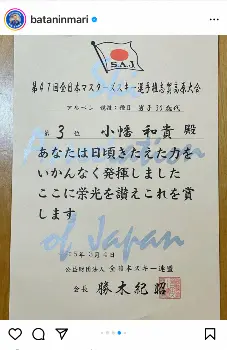 bataninmari
S.A.J
第47回全日本マスターズスキー選手権志賀高原大会
アルペン 競技・種目 男子35歳代
第3位 小幡和貴 殿
あなたは日頃きたえた力を
いかんなく発揮しました
ここに栄光を讃えこれを賞
します
公益財団法人 全日本スキー連盟
会長 勝木紀昭
Association
of Japan